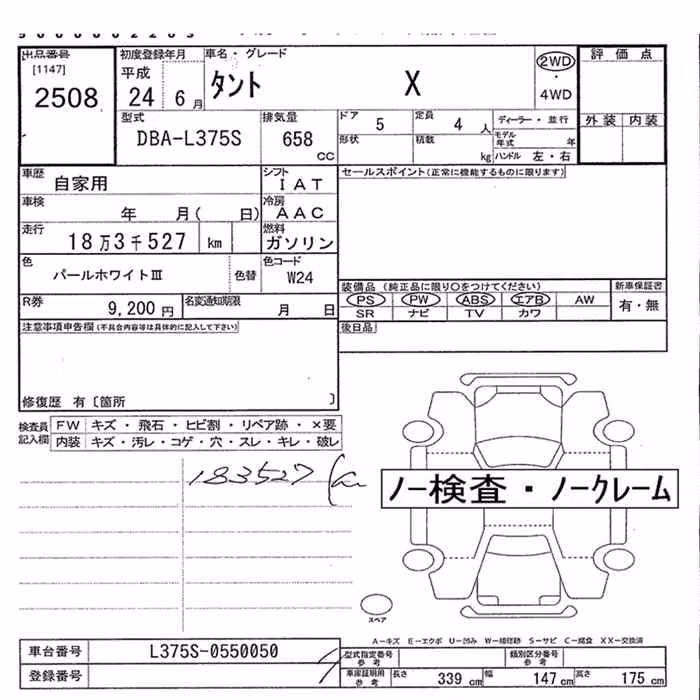 出品番号 初度登録年月 車名・グレード 評価点
[1147] 2508 平成 24 6月 タント X 2WD ・ 4WD
型式 排気量 ドア 5 定員 4人 ディーラー・並行 外装 内装
DBA-L375S 658 cc 形状 積載 kg モデル年式 年 ハンドル 左・右
車歴 自家用 シフト IAT セールスポイント(正常に機能するものに限ります)
車検 年 月( 日) 冷房 AAC
走行 18万3千527 km 燃料 ガソリン
色 パールホワイトIII 色替 色コード W24
装備品 (純正品に限り○をつけてください) 新車保証書
R券 9,200円 名変通知期限 月 日 PS PW ABS エアB AW 有・無
SR ナビ TV カワ
注意事項申告欄(不具合内容等は具体的に記入して下さい) 後日品
修復歴 有〔箇所 〕
検査員記入欄 FW キズ・飛石・ヒビ割・リペア跡・×要
内装 キズ・汚レ・コゲ・穴・スレ・キレ・破レ
183527
ノー検査・ノークレーム
スペア
A-キズ E-エクボ U-凹み W-補修跡 S-サビ C-腐食 XX-交換済
車台番号 L375S-0550050 型式指定番号 参考 類別区分番号 参考
登録番号 車庫証明用 参考 長さ 339 cm 幅 147 cm 高さ 175 cm